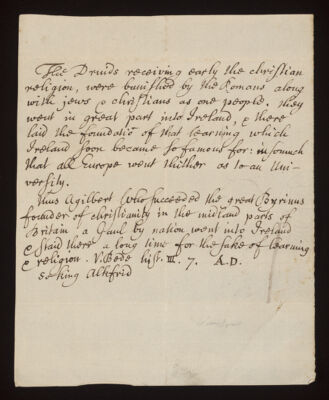 The Druids receiving early the christian
religion, were banished by the Romans along
with jews & christians as one people. they
went in great part into Ireland, & there
laid the foundatiō of that learning which
Ireland soon became so famous for: insomuch
that all Europe went thither as to an Uni-
versity.
thus Agilbert who succeeded the great Byrinus
founder of christianity in the midland parts of
Britain a Gaul by nation went into Ireland
& staid there a long time for the sake of learning
& religion. V. Bede hist. III. 7. A.D.
seeking Alkfrid